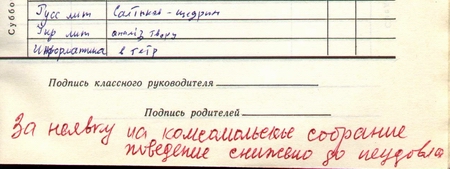 Суббо
Русс лит Салтыков-Щедрин
Укр лит аналіз твору
Информатика в тетр
Подпись классного руководителя
Подпись родителей
За неявку на комсомольское собрание
поведение снижено до неудовл